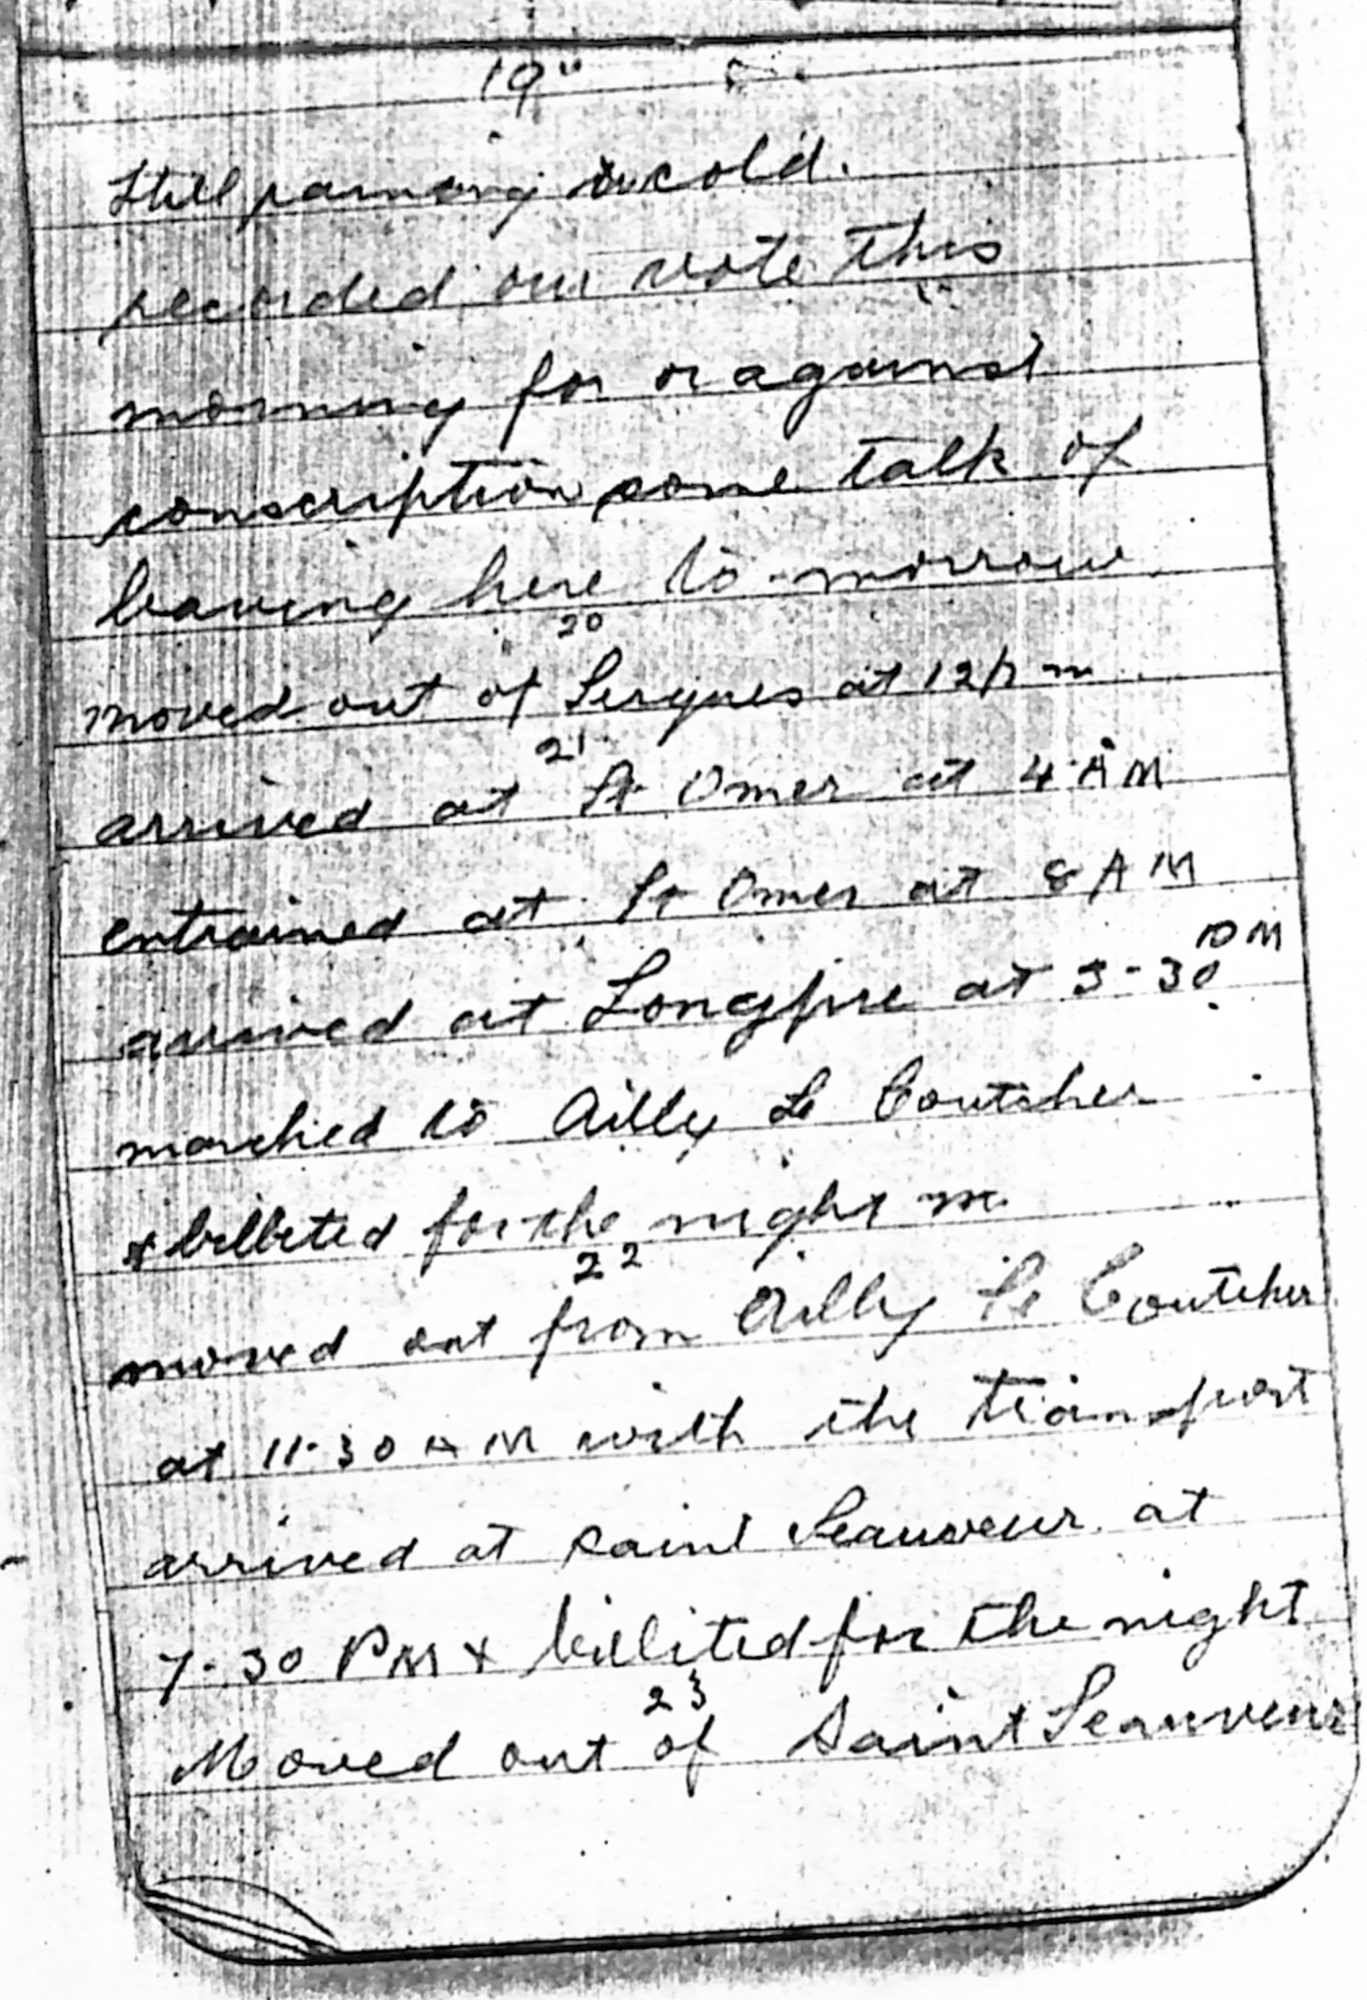 19"
Still raining & cold.
recorded our vote this
morning for or against
conscription some talk of
leaving here to-morrow.
20
moved out of Serques at 12 pm
21
arrived at St Omer at 4 AM
entrained at St Omer at 8 AM
arrived at Longpre at 3-30 PM
marched to Ailly Le Coutcher
& billeted for the night
22
moved out from Ailly Le Coutcher
at 11-30 AM with the transport
arrived at saint Seauveur at
7-30 PM & billited for the night
23
Moved out of Saint Seauveur